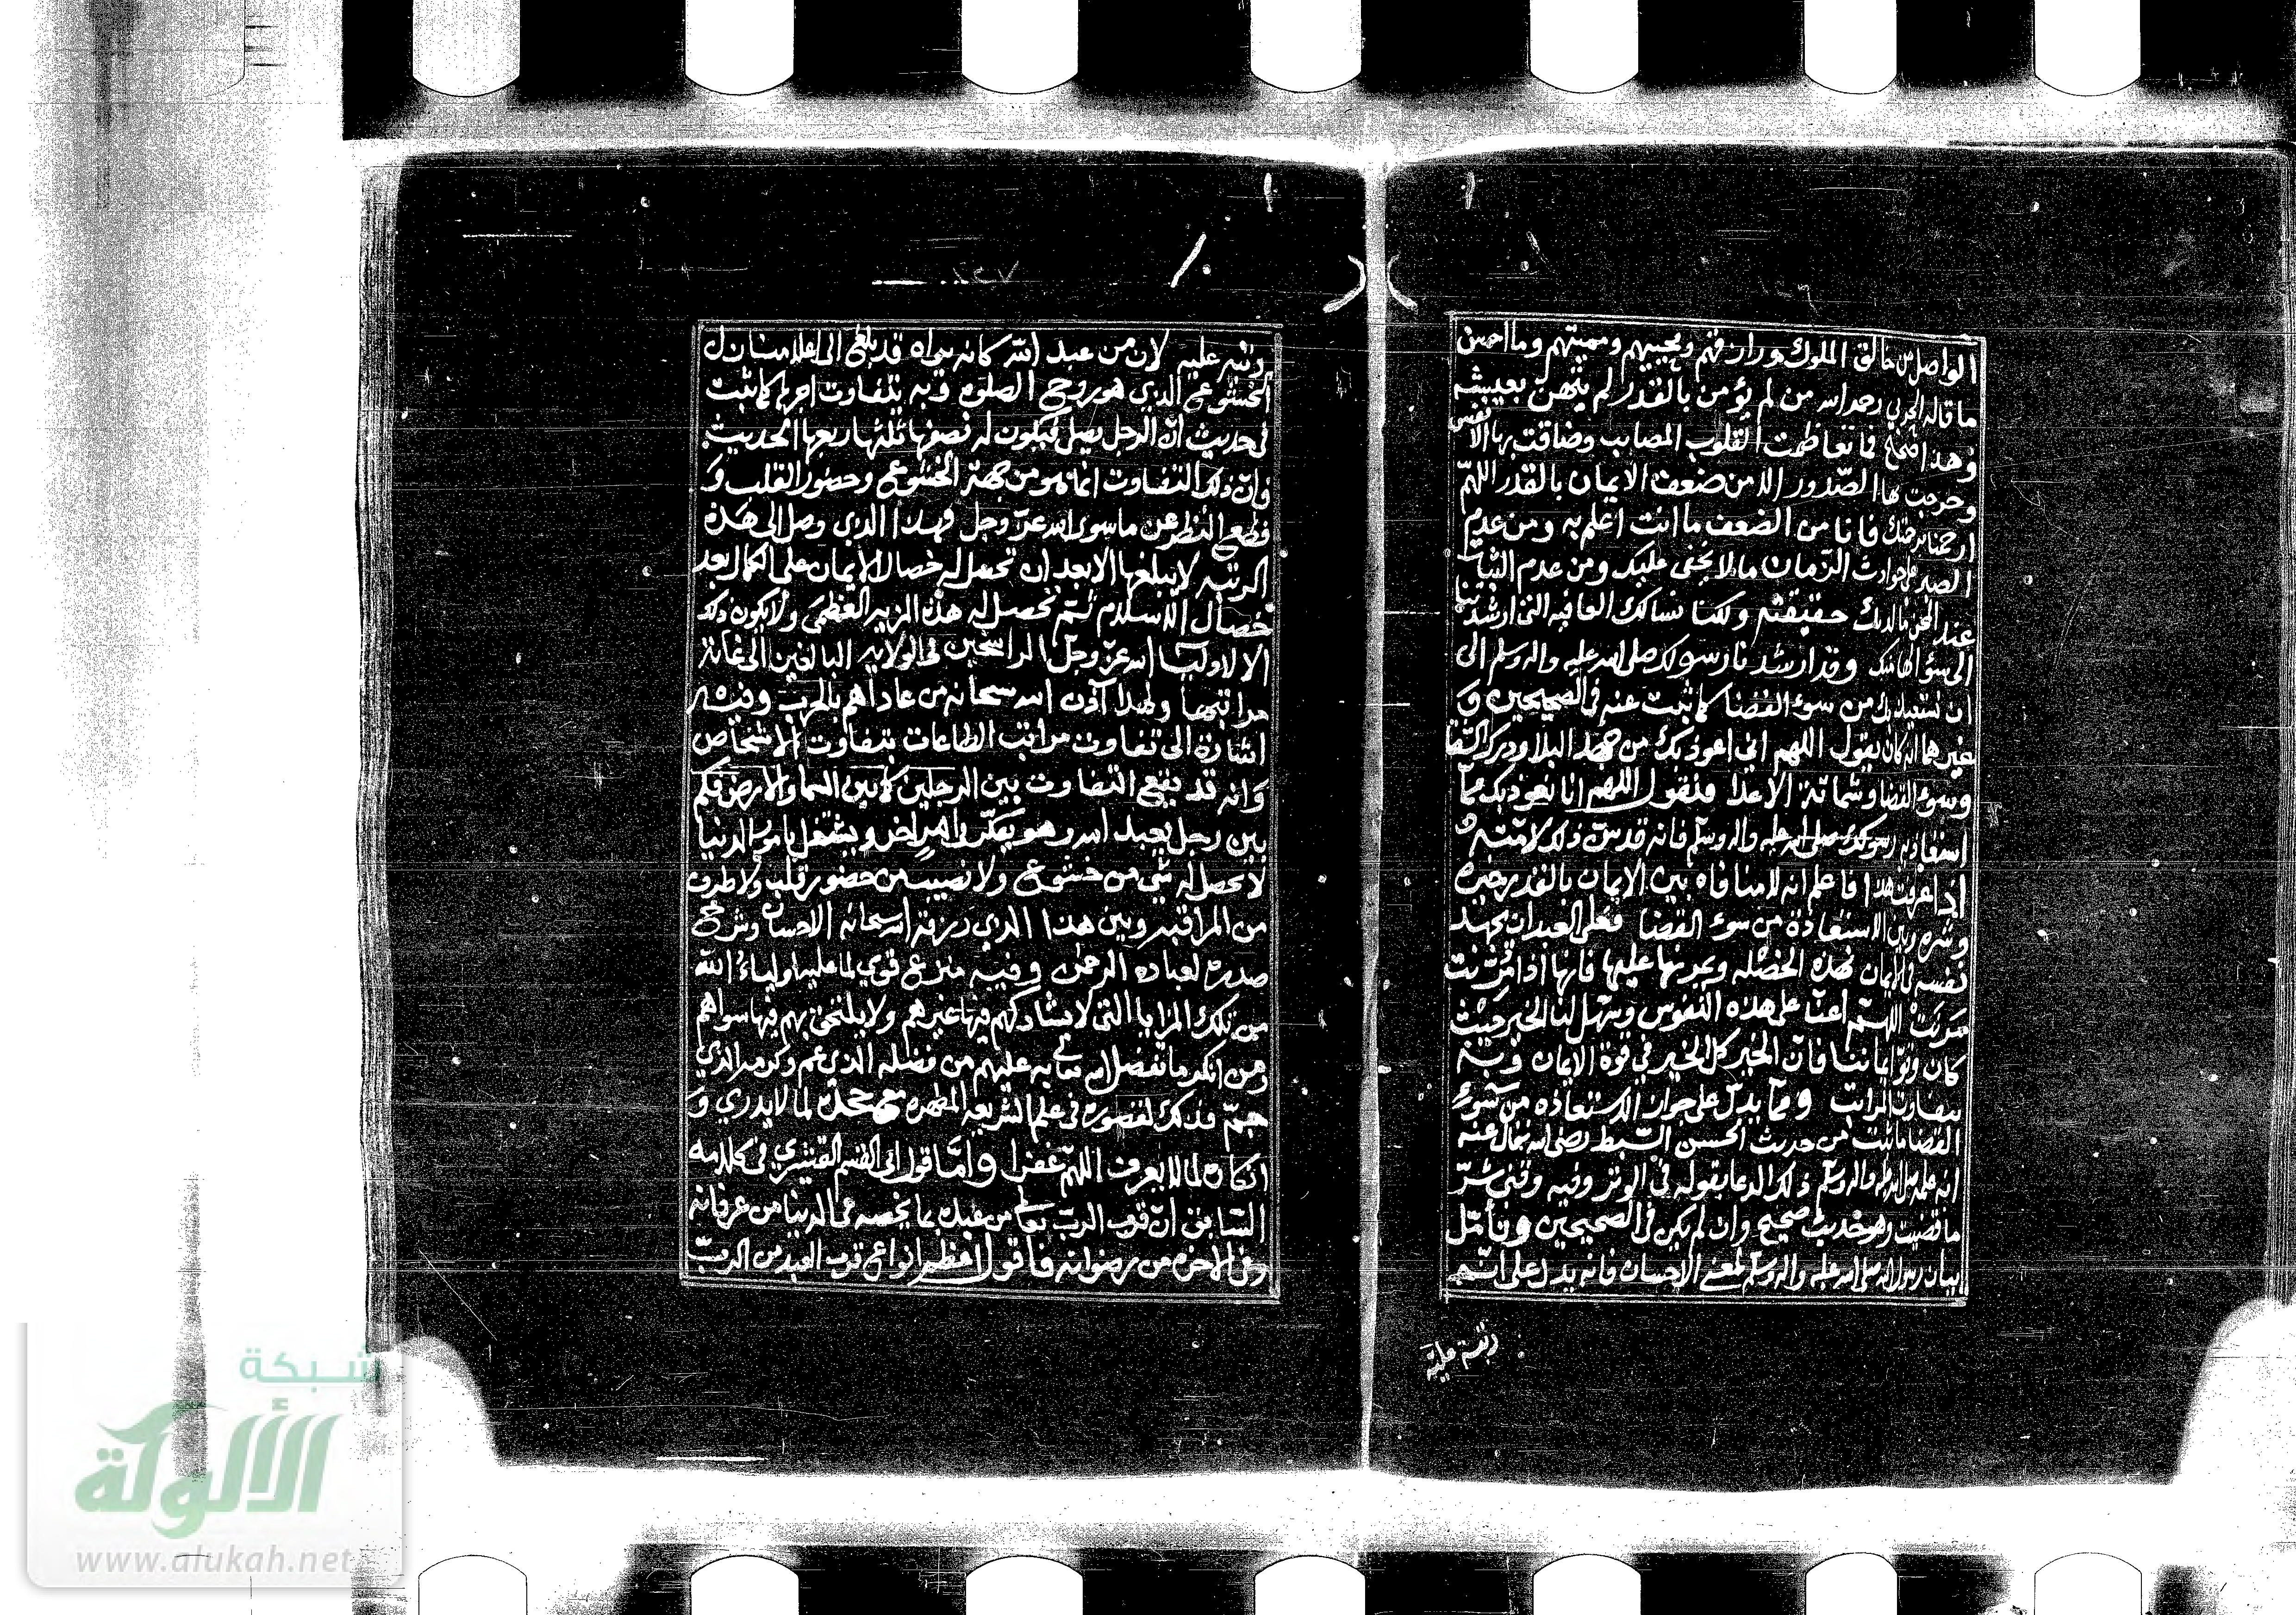 الواصل من خالق الملوك ورازقهم ومحييهم ومميتهم وما احسن
ما قاله الحربي رحمه الله من لم يؤمن بالقدر لم يتهن بعيشه
وهذا صحيح فما تعاظمت القلوب المصايب وضاقت بها الانفس
وحرجت بها الصدور الا من ضعف الايمان بالقدر اللهم
ارحمنا برحمتك فانا من الضعف ما انت اعلم به ومن عدم
الصبر على حوادث الزمان ما لا يخفى عليك ومن عدم الثبات
عند المحن ما لديك حقيقته ولكنا نسالك العافية التي ارشدتنا
الى سؤالها منك وقد ارشدنا رسولك صلى الله عليه واله وسلم الى
ان نستعيذ بك من سوء القضا كما ثبت عنه في الصحيحين و
غيرهما انه كان يقول اللهم اني اعوذ بك من جهد البلا ودرك الشقا
وسوء القضا وشماتة الاعدا فنقول اللهم انا نعوذ بك مما
استعاذ به رسولك صلى الله عليه واله وسلم فانه قد سن ذلك لامته
اذا عرفت هذا فاعلم انه لا منافاه بين الايمان بالقدر خيره
وشره وبين الاستعاذة من سوء القضا فعلى العبد ان يجهد
نفسه في الايمان بهذه الخصله ويمرنها عليها فانها اذا مُرنت
مَرنت اللهم أعنا على هذه النفوس وسهل لنا الخير حيث
كان وقو ايماننا فان الخير كل الخير في قوة الايمان وبه
يتفاوت المراتب ومما يدل على جواز الاستعاذه من سوء
القضا ما ثبت من حديث الحسن السبط رضي الله عنه
انه علمه صلى الله عليه واله وسلم ذلك الدعا يقوله في الوتر وفيه وقني شر
ما قضيت وهو حديث صحيح وان لم يكن في الصحيحين وتأمل
بيان رسول الله صلى الله عليه واله وسلم لمعنى الاحسان فانه يدل على انه
رتبة عليه
٢٤٧
رتبه عليه لان من عبد الله كانه يراه قد بلغ الى اعلا منازل
الخشوع الذي هو روح الصلوة وبه يتفاوت اجرها كما ثبت
في حديث أن الرجل يصلي فيكون له نصفها ثلثها ربعها الحديث
فان ذلك التفاوت انما هو من جهة الخشوع وحضور القلب و
قطع النظر عن ما سوى الله عز وجل فهذا الذي وصل الى هذه
الرتبه لا يبلغها الا بعد ان تحصل له خصال الايمان على الكمال بعد
خصال الاسلام ثم تحصل له هذه المزيه العظمى ولا يكون ذلك
الا لاوليا الله عز وجل الراسخين في الولايه البالغين الى غاية
مراتبها ولهذا آذن الله سبحانه من عاداهم بالحرب وفيه
اشارة الى تفاوت مراتب الطاعات بتفاوت الاشخاص
وانه قد يقع التفاوت بين الرجلين كما بين السما والارض فكم
بين رجل يعبد الله وهو يفكر في امر اخر ويشتغل بامور الدنيا
لا يحصل له شي من خشوع ولا نصيب من حضور قلب ولا طرف
من المراقبه وبين هذا الذي رزقه الله سبحانه الاحسان وشرح
صدره لعباده الرحمن وفيه منزع قوي لما عليه اولياء الله
من تلك المزايا التي لا يشاركهم فيها غيرهم ولا يلتحق بهم فيها سواهم
ومن انكر ما تفضل الله تعالى به عليهم من فضله الذي عم وكرمه الذي
جم فذلك لقصوره في علم الشريعه المطهره جحده لما لا يدري و
انكاره لما لا يعرف اللهم غفرا واما قول ابي القسم القشيري في كلامه
السابق ان قرب الرب تعالى من عبده بما يخصه في الدنيا من عرفانه
وفي الاخره من رضوانه فاقول اعظم انواع قرب العبد من الرب
شبكة
الألوكة
www.alukah.net